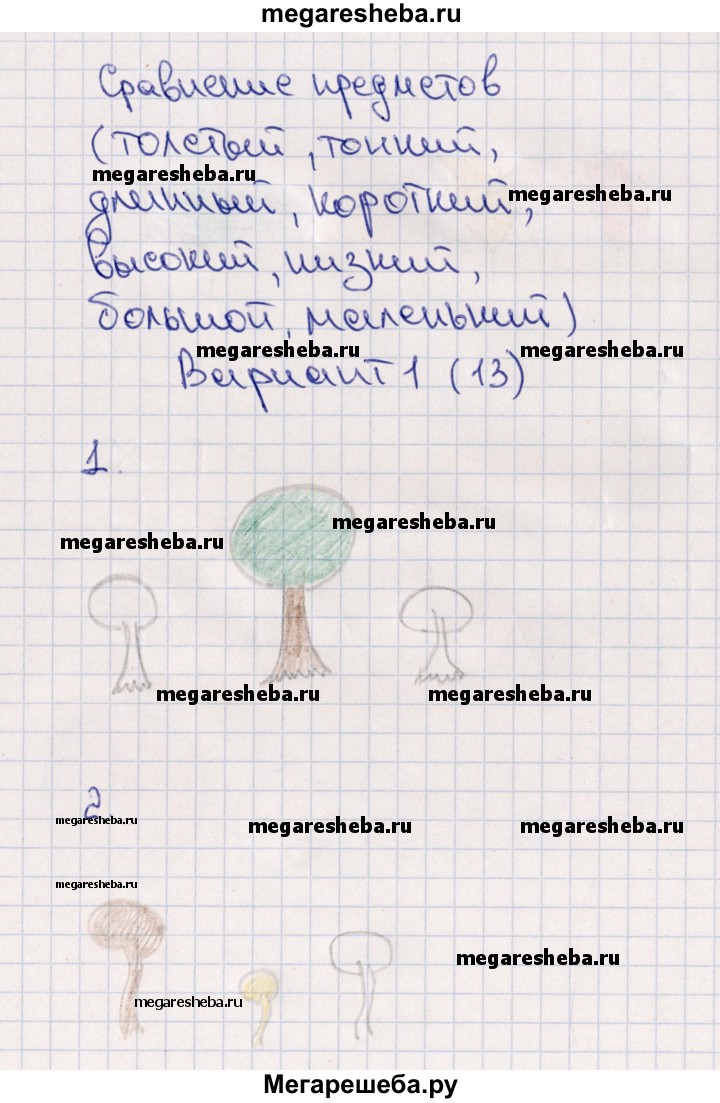 megaresheba.ru
Сравнение предметов
(толстый, тонкий,
megaresheba.ru
длинный, короткий,
megaresheba.ru
высокий, низкий,
большой, маленький)
megaresheba.ru
megaresheba.ru
Вариант 1 (13)
1.
megaresheba.ru
megaresheba.ru
megaresheba.ru
megaresheba.ru
2.
megaresheba.ru
megaresheba.ru
megaresheba.ru
megaresheba.ru
megaresheba.ru
megaresheba.ru
Мегарешеба.ру